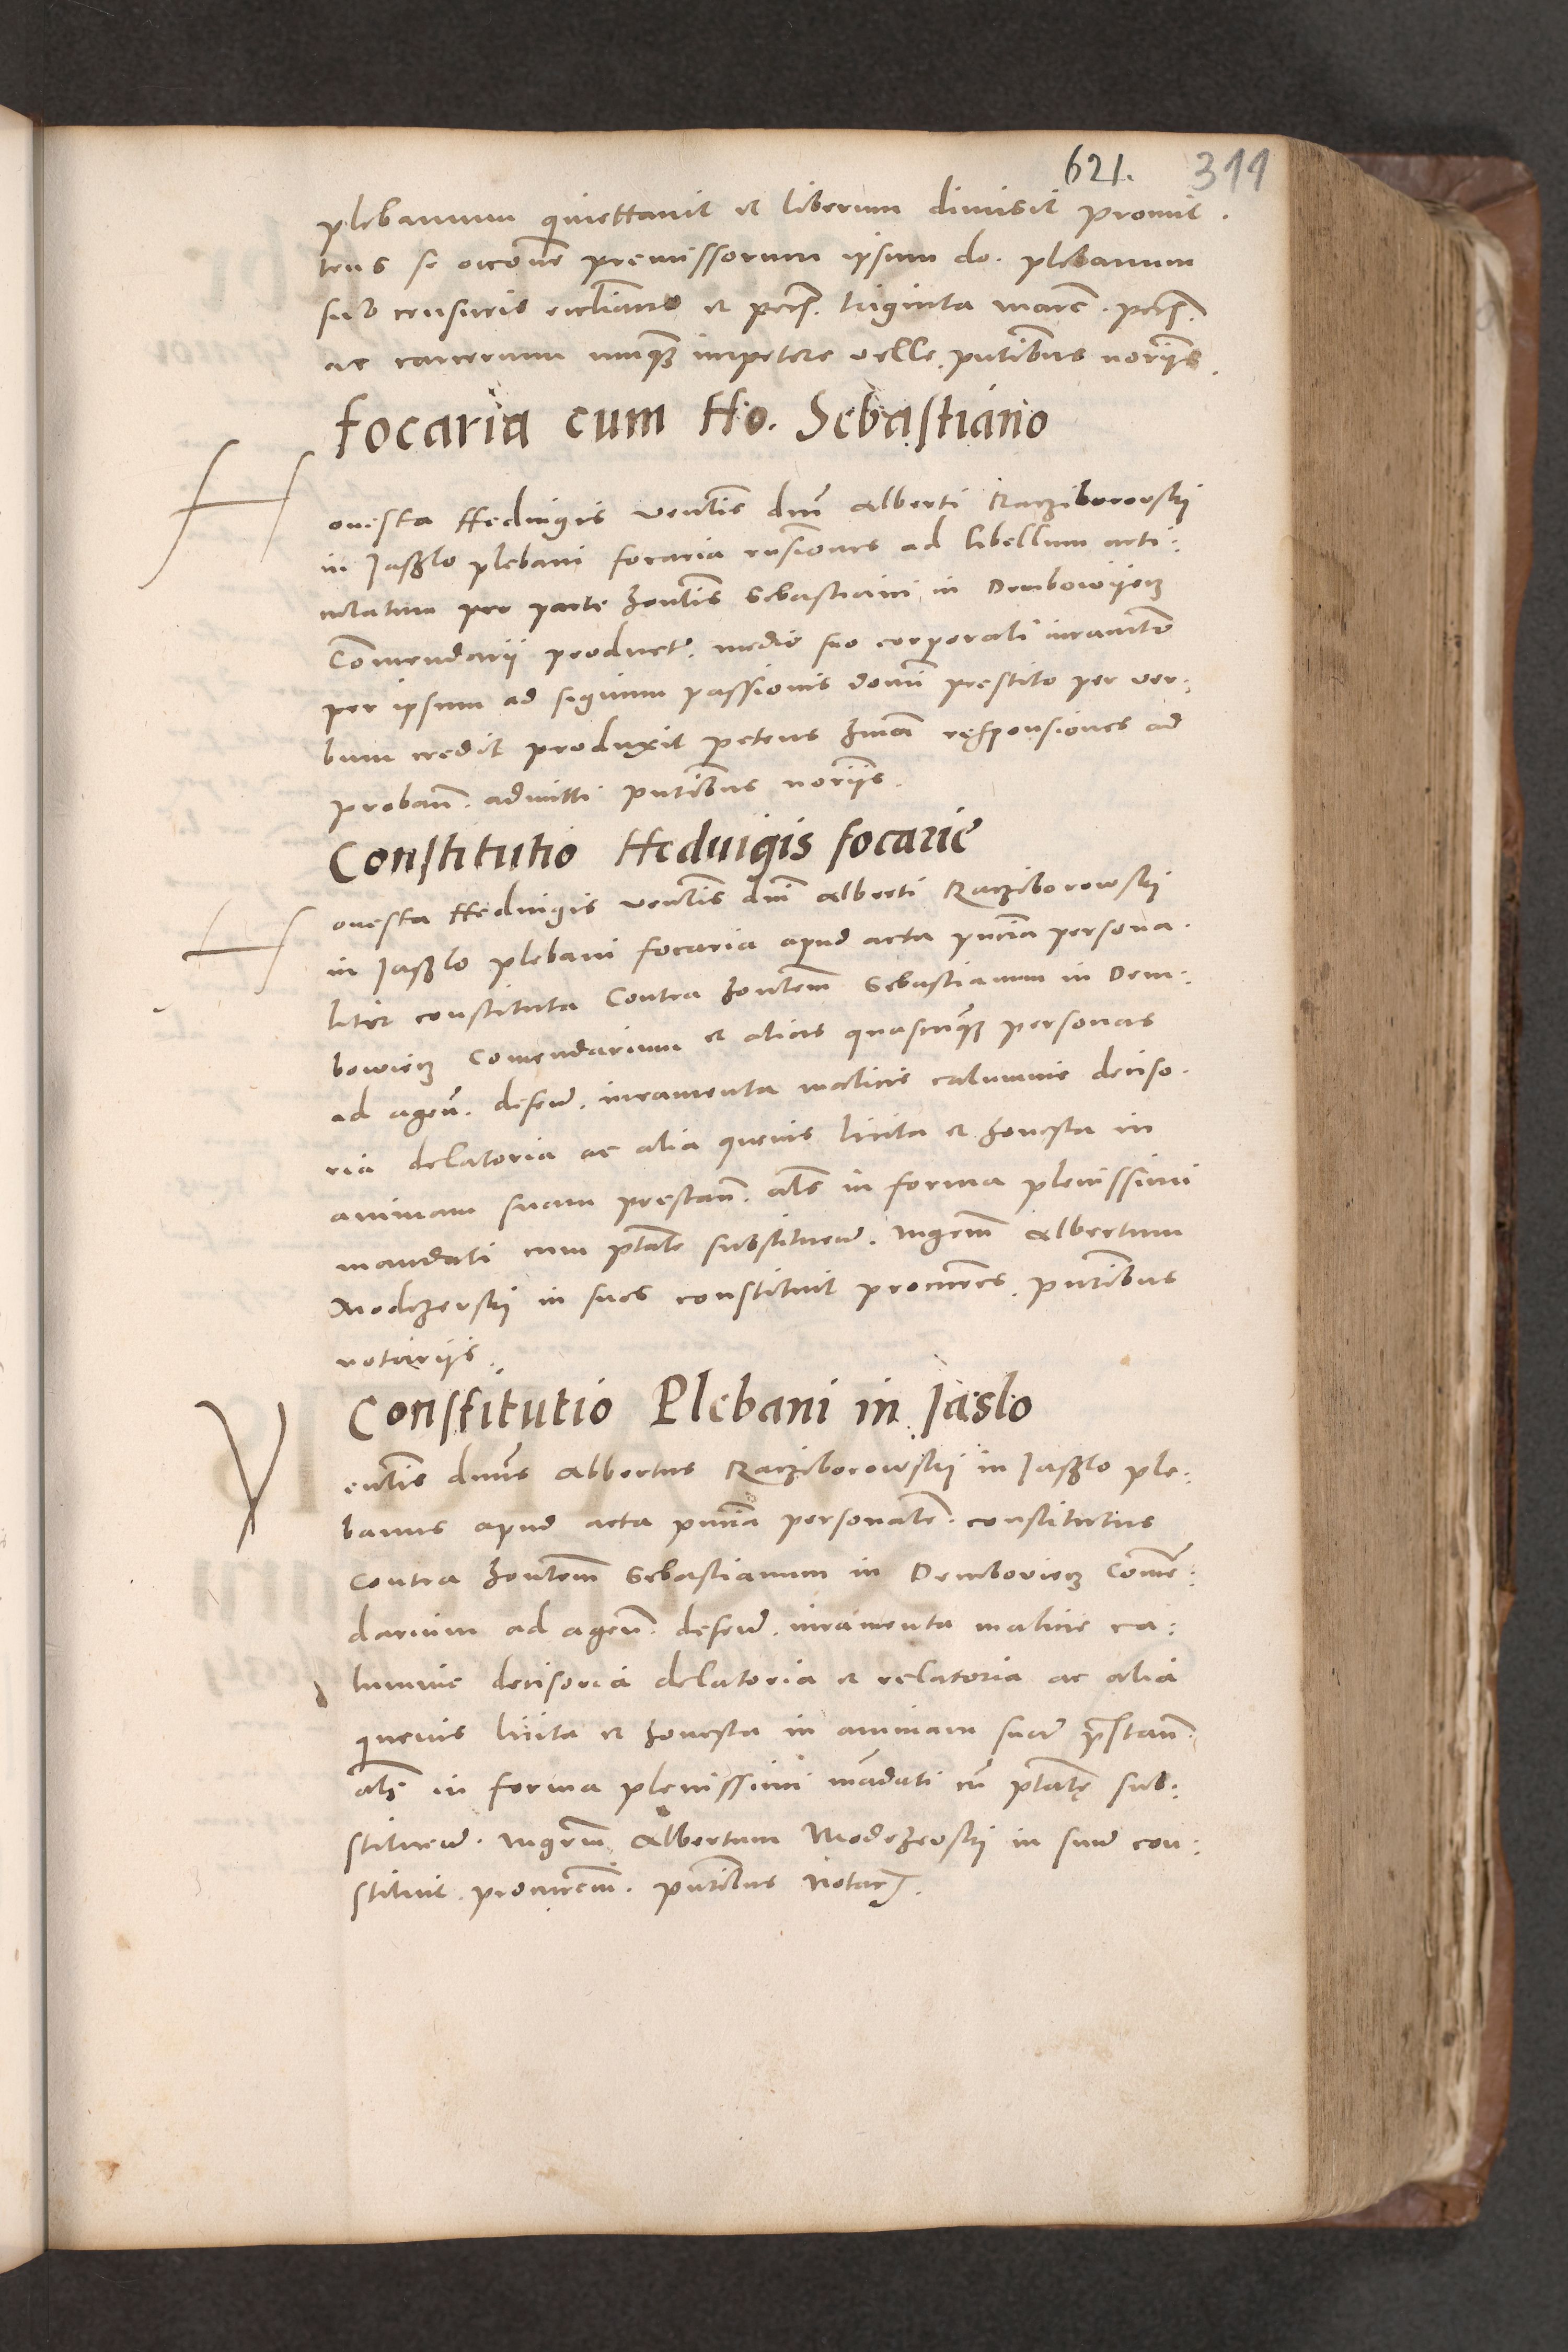 621. 311
plebanum quiettavit et liberum dimisit promit.
tens se occ̄one premissorum ipsum do. plebanum
sub censuris eccl̄iacis et pecī. triginta marc̄. pecī.
ac carcerum nunq̄ impetere velle. pn̄tibus nor̄ijs.
Focaria cum Ho. Sebastiano
Honesta Hedvigis ven̄lis dn̄i Alberti Racziborowskÿ
in Jasslo plebani focaria rn̄siones ad libellum arti:
culatum pro parte hon̄lis Sebastiani in Dembowÿecz
Com̄endarij product̄. medio suo corporali iuramēto
per ipsum ad signum passionis domī prestito per ver:
bum credit produxit petens hm̄oi responsiones ad
probanḋ. admitti pn̄tibus nor̄ijs.
Constitutio Hedvigis focarie
Honesta Hedvigis ven̄lis dn̄i Alberti Racziborowskÿ
in Jasslo plebani focaria apud acta pn̄cia persona.
liter constituta Contra hon̄lem Sebastianum in Dem:
bowiecz Comendarium et alias quascunq̄ personas
ad agenḋ. defenḋ. iuramenta malicie calumnie deciso.
ria delatoria ac alia quevis licita et honesta in
animam suam prestanḋ. al̄s in forma plenissimi
mandati cum pt̄ate substituenḋ. mgr̄m Albertum
Modezerskÿ in suos constituit procur̄es. pn̄tibus
notarijs.
Constitutio Plebani in Jaslo
Ven̄lis dn̄us Albertus Racziborowskÿ in Jasslo ple:
banus apud acta pn̄cia personal̄r. constitutus
Contra hon̄lem Sebastianum in Demboviecz Comē:
darium ad agenḋ. defenḋ. iuramenta malicie ca:
lumnie decisoria delatoria et relatoria ac alia
quevis licita et honesta in animam suā prestanḋ.
al̄s in forma plenissimi mādati cū pt̄ate sub:
stituenḋ. mgr̄m Albertum Modezerskÿ in suū con:
stituit procur̄em. pn̄tibus Notar̄.